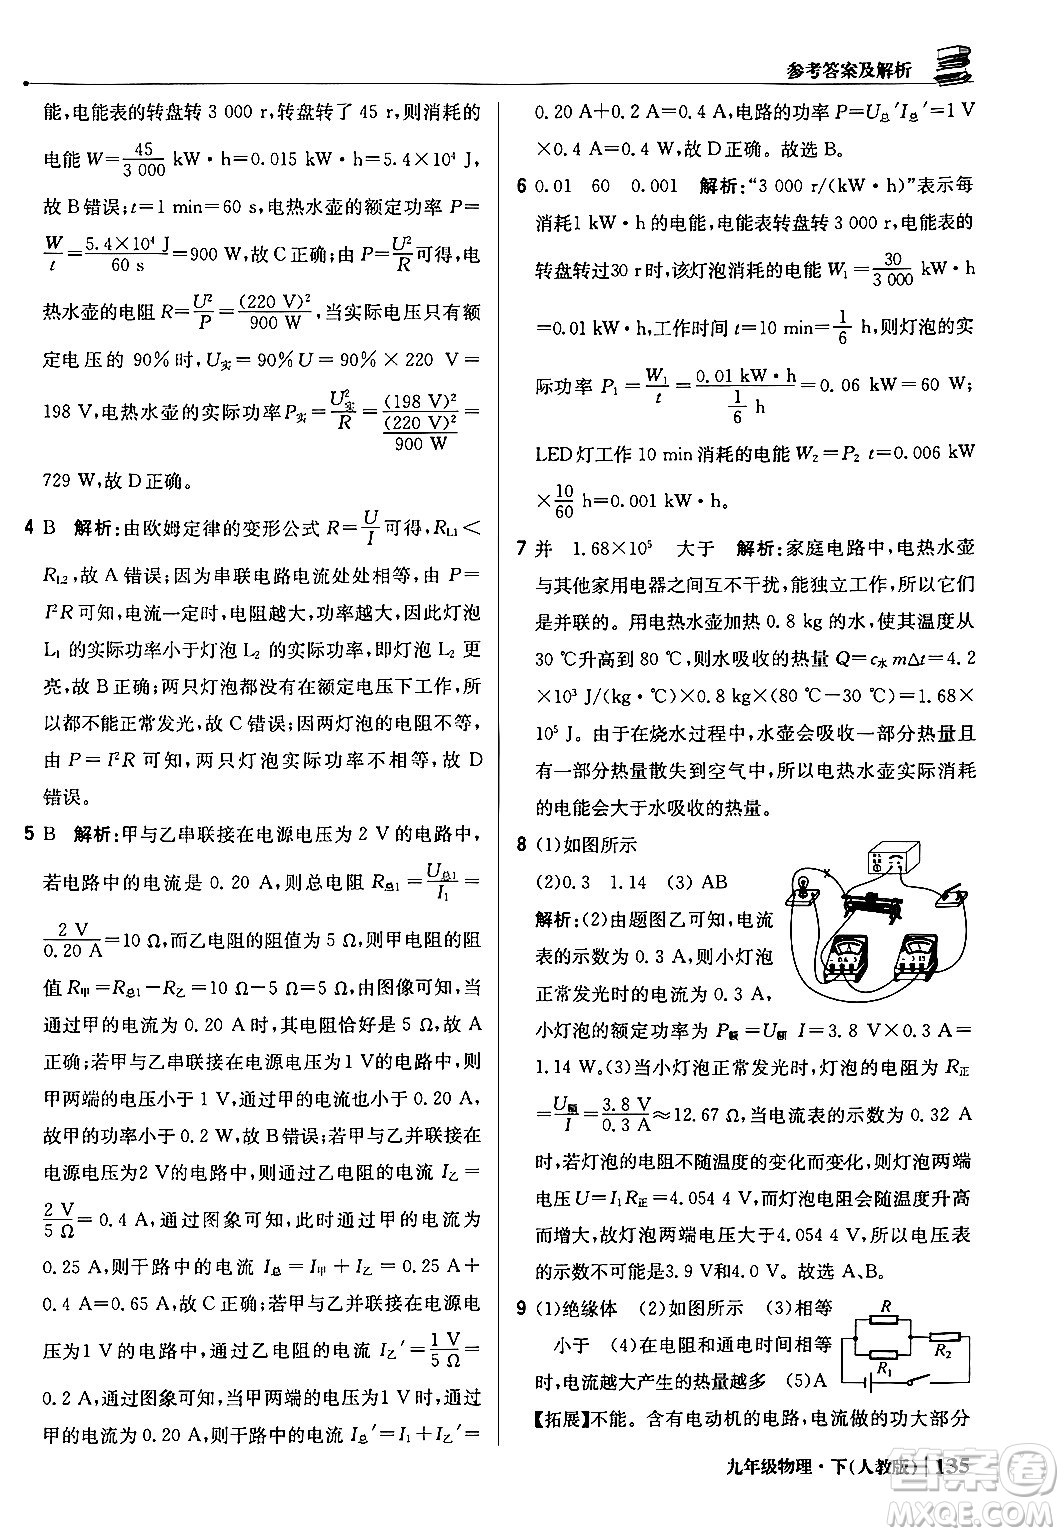 参考答案及解析
能,电能表的转盘转 3 000 r,转盘转了 45 r,消耗的
电能 W=45/3 000 kW·h=0.015 kW·h=5.4×10⁴ J,
故 B 错误;t=1 min=60 s,电热水壶的额定功率 P=
W/t=5.4×10⁴ J/60 s=900 W,故 C 正确;由 P=U²/R可得,电
热水壶的电阻 R=U²/P=(220 V)²/900 W,当实际电压只有额
定电压的 90%时,U实=90%U=90%×220 V=
198 V,电热水壶的实际功率P实=U实²/R=(198 V)²/((220 V)²/900 W)=
729 W,故 D 正确。
4 B 解析:由欧姆定律的变形公式 R=U/I可得,RL1<
RL2,故 A 错误;因为串联电路电流处处相等,由 P=
I²R 可知,电流一定时,电阻越大,功率越大,因此灯泡
L₁ 的实际功率小于灯泡 L₂ 的实际功率,即灯泡 L₂ 更
亮,故 B 正确;两只灯泡都没有在额定电压下工作,所
以都不能正常发光,故 C 错误;因两灯泡的电阻不等,
由 P=I²R 可知,两只灯泡的实际功率不等,故 D
错误。
5 B 解析:甲与乙串联接在电源电压为 2 V 的电路中,
若电路中的电流是 0.20 A,则总电阻 R总1=U总1/I₁=
2 V/0.20 A=10 Ω,而乙电阻的阻值为 5 Ω,则甲电阻的阻
值 R甲=R总1-R乙=10 Ω-5 Ω=5 Ω,由图像可知,当
通过甲的电流为 0.20 A时,其电阻恰好为 5 Ω,故 A
正确;若甲与乙串联接在电源电压为1 V的电路中,则
甲两端的电压小于 1 V,通过甲的电流也小于 0.2 A,
故甲的功率小于 0.2 W,故 B 错误;若甲与乙并联接在
电源电压为2 V 的电路中,则通过乙电阻的电流 I乙=
2 V/5 Ω=0.4 A,通过图象可知,此时通过甲的电流为
0.25 A,则干路中的电流 I总=I甲+I乙=0.25 A+
0.4 A=0.65 A,故 C 正确;若甲与乙并联接在电源电
压为1 V 的电路中,则通过乙电阻的电流 I乙′=1 V/5 Ω=
0.2 A,通过图象可知,当甲两端的电压为1 V时,通过
甲的电流为 0.20 A,则干路中的电流 I总′=I₁′+I乙′=
0.20 A+0.2 A=0.4 A,电路的功率 P=U总′I总′=1 V
×0.4 A=0.4 W,故 D 正确。故选 B。
6 0.01 60 0.001 解析:“3 000 r/(kW·h)”表示每
消耗1 kW·h 的电能,电能表转盘转 3 000 r,电能表的
转盘转过30 r时,该灯泡消耗的电能 W₁=30/3 000 kW·h
=0.01 kW·h,工作时间 t=10 min=1/6 h,则灯泡的实
际功率 P₁=W₁/t=0.01 kW·h/(1/6 h)=0.06 kW=60 W;
LED 灯工作 10 min 消耗的电能 W₂=P₂ t=0.006 kW
×10/60 h=0.001 kW·h。
7 并 1.68×10⁵ 大于 解析:家庭电路中,电热水壶
与其他家用电器之间互不干扰,能独立工作,所以它们
是并联的。用电热水壶加热 0.8 kg 的水,使其温度从
30 ℃升高到 80 ℃,则水吸收的热量 Q=c水 mΔt=4.2
×10³ J/(kg·℃)×0.8 kg×(80 ℃-30 ℃)=1.68×
10⁵ J。由于在烧水过程中,水壶会吸收一部分热量,且
有一部分热量散失到空气中,所以电热水壶实际消耗
的电能会大于水吸收的热量。
8 (1)如图所示
(2)0.3 1.14 (3) AB
解析:(2)由题图乙可知,电流
表的示数为 0.3 A,则小灯泡
正常发光时的电流为 0.3 A,
小灯泡的额定功率为 P额=U额 I=3.8 V×0.3 A=
1.14 W。(3)当小灯泡正常发光时,灯泡的电阻 R正
=U额/I=3.8 V/0.3 A≈12.67 Ω,当电流表的示数为 0.32 A
时,若灯泡的电阻不随温度的变化而变化,则灯泡两端
电压 U=I₁R正=4.054 4 V,因灯泡电阻会随温度升高
而增大,故灯泡两端电压大于4.054 4 V,所以电压表
的示数可能是3.9 V和4.0 V。故选 A、B。
9 (1)绝缘体 (2)如图所示 (3)相等
小于 (4)在电阻和通电时间相等
时,电流越大产生的热量越多 (5)A
【拓展】不能。含有电动机的电路,电流做的功大部分
R
R₁
R₂
九年级物理·下(人教版) 135
答案卷
MXQE.COM